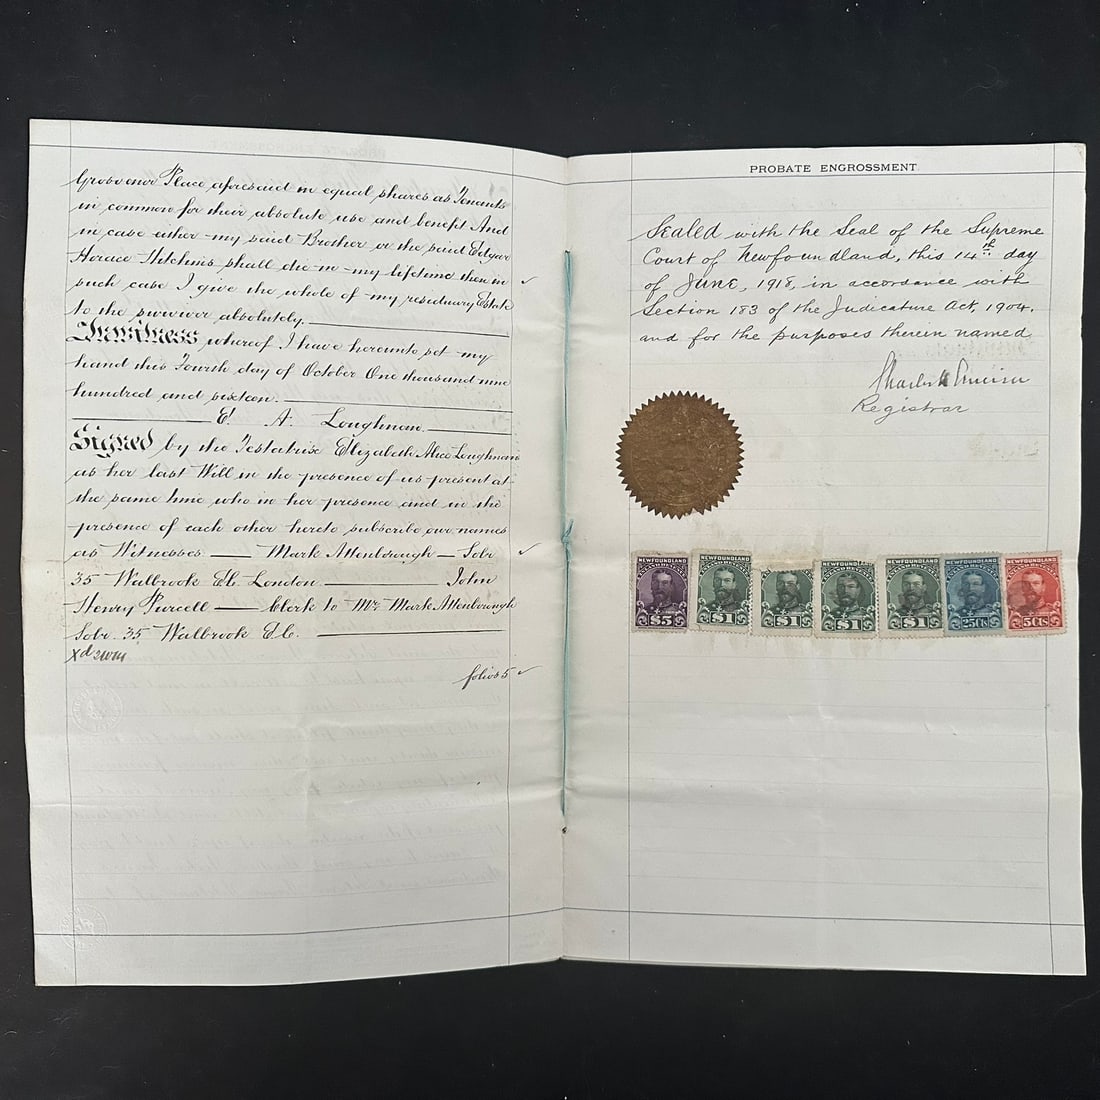 Grosvenor Place aforesaid in equal shares as Tenants
in common for their absolute use and benefit And
in case either my said Brother or the said Edgar
Horace Hitchins shall die in my lifetime then in
such case I give the whole of my residuary Estate
to the survivor absolutely.
In witness whereof I have hereunto set my
hand this Fourth day of October One thousand nine
hundred and sixteen.
E. A. Loughman.
Signed by the Testatrix Elizabeth Alice Loughman
as her last Will in the presence of us present at
the same time who in her presence and in the
presence of each other hereto subscribe our names
as Witnesses — Mark Attenborough — Solr
35 Walbrook E.C. London — John
Henry Purcell — Clerk to Mr Mark Attenborough
Solr. 35 Walbrook E.C.
folios 5
PROBATE ENGROSSMENT
Sealed with the Seal of the Supreme
Court of Newfoundland, this 14th day
of June, 1918, in accordance with
Section 183 of the Judicature Act, 1904.
and for the purposes therein named
Registrar
NEWFOUNDLAND
$5
NEWFOUNDLAND
$1
$1
NEWFOUNDLAND
$1
NEWFOUNDLAND
$1
NEWFOUNDLAND
25Cts
NEWFOUNDLAND
5Cts